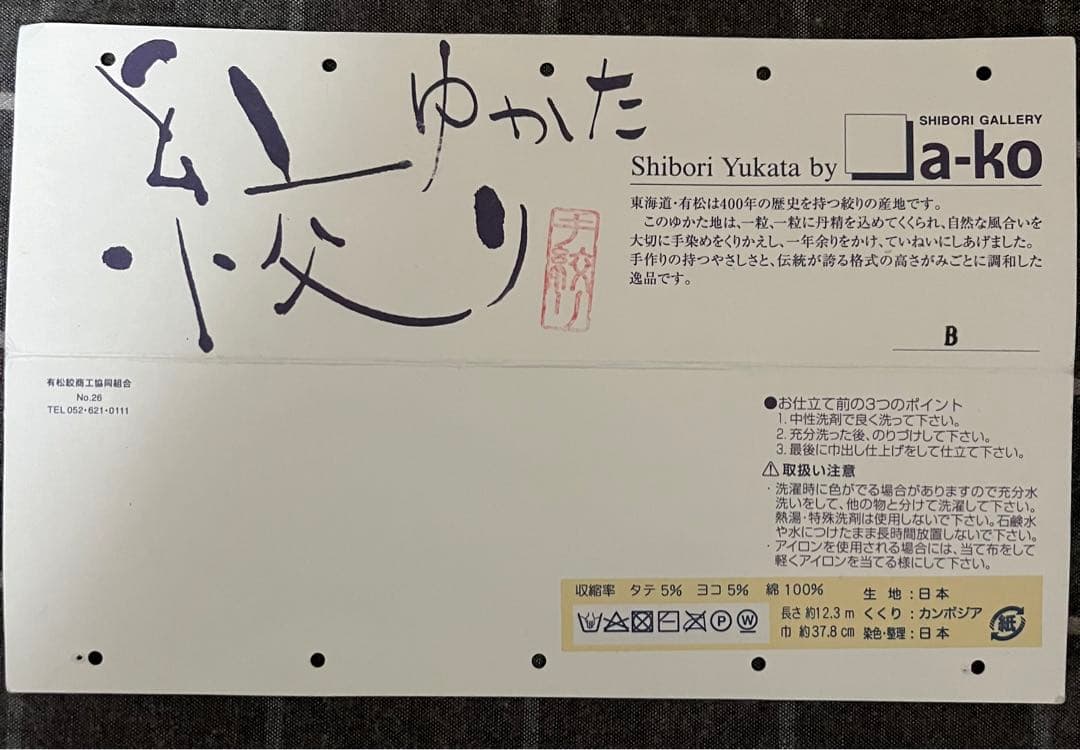 絞り
ゆかた
手絞り
SHIBORI GALLERY
a-ko
Shibori Yukata by
東海道・有松は400年の歴史を持つ絞りの産地です。
このゆかた地は、一粒、一粒に丹精を込めてくくられ、自然な風合いを
大切に手染めをくりかえし、一年余りをかけ、ていねいにしあげました。
手作りの持つやさしさと、伝統が誇る格式の高さがみごとに調和した
逸品です。
B
有松絞商工協同組合
No.26
TEL 052・621・0111
●お仕立て前の3つのポイント
1. 中性洗剤で良く洗って下さい。
2. 充分洗った後、のりづけして下さい。
3. 最後に巾出し仕上げをして仕立て下さい。
⚠取扱い注意
・洗濯時に色がでる場合がありますので充分水
洗いをして、他の物と分けて洗濯して下さい。
熱湯・特殊洗剤は使用しないで下さい。石鹸水
や水につけたまま長時間放置しないで下さい。
・アイロンを使用される場合には、当て布をして
軽くアイロンを当てる様にして下さい。
収縮率 タテ5% ヨコ5% 綿100%
P W
長さ 約12.3 m
巾 約37.8 cm
生地:日本
くくり:カンボジア
染色・整理:日本
紙